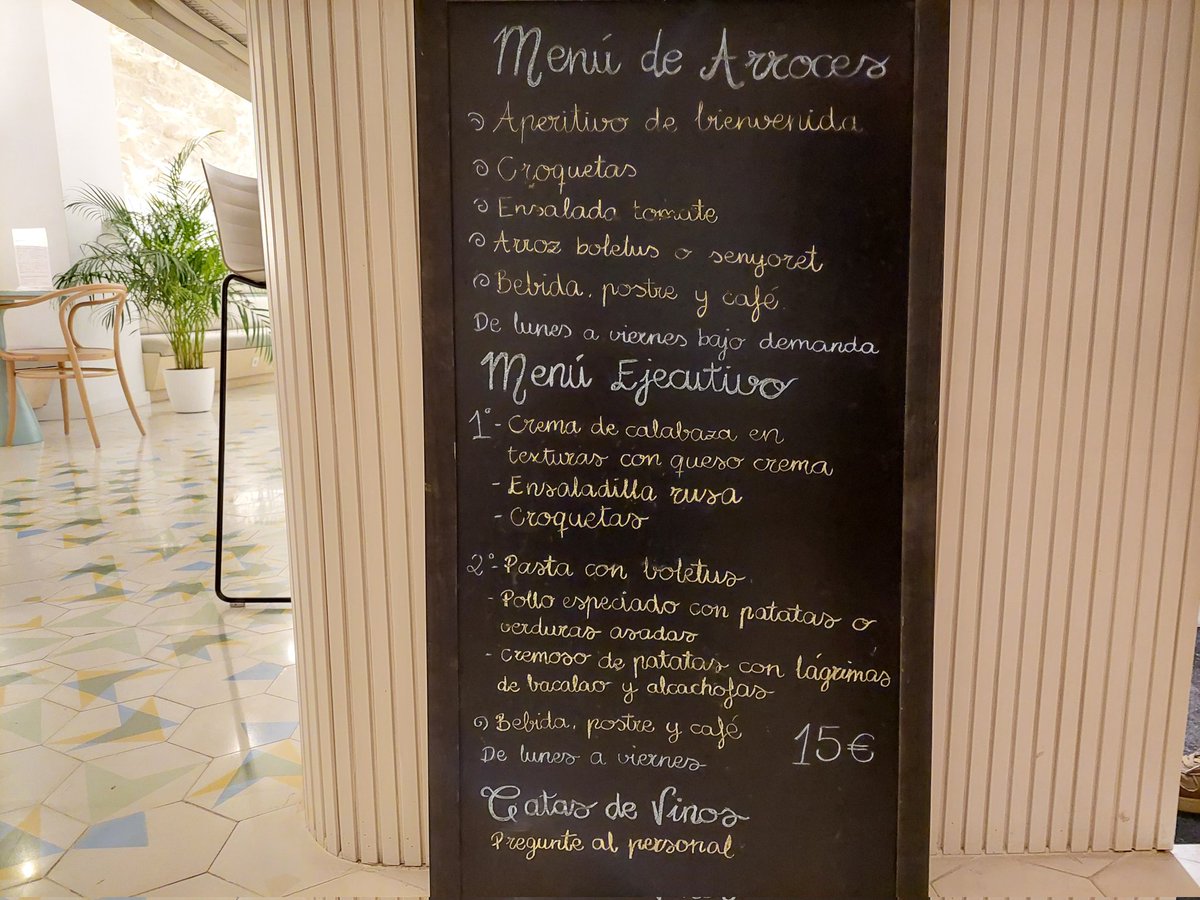 Menú de Arroces
Aperitivo de bienvenida
Croquetas
Ensalada tomate
Arroz boletus o senyoret
Bebida, postre y café
De lunes a viernes bajo demanda
Menú Ejecutivo
1º - Crema de calabaza en
texturas con queso crema
- Ensaladilla rusa
- Croquetas
2º - Pasta con boletus
- Pollo especiado con patatas o
verduras asadas
- cremoso de patatas con lágrimas
de bacalao y alcachofas
Bebida, postre y café
15€
De lunes a viernes
Catas de Vinos
Pregunte al personal